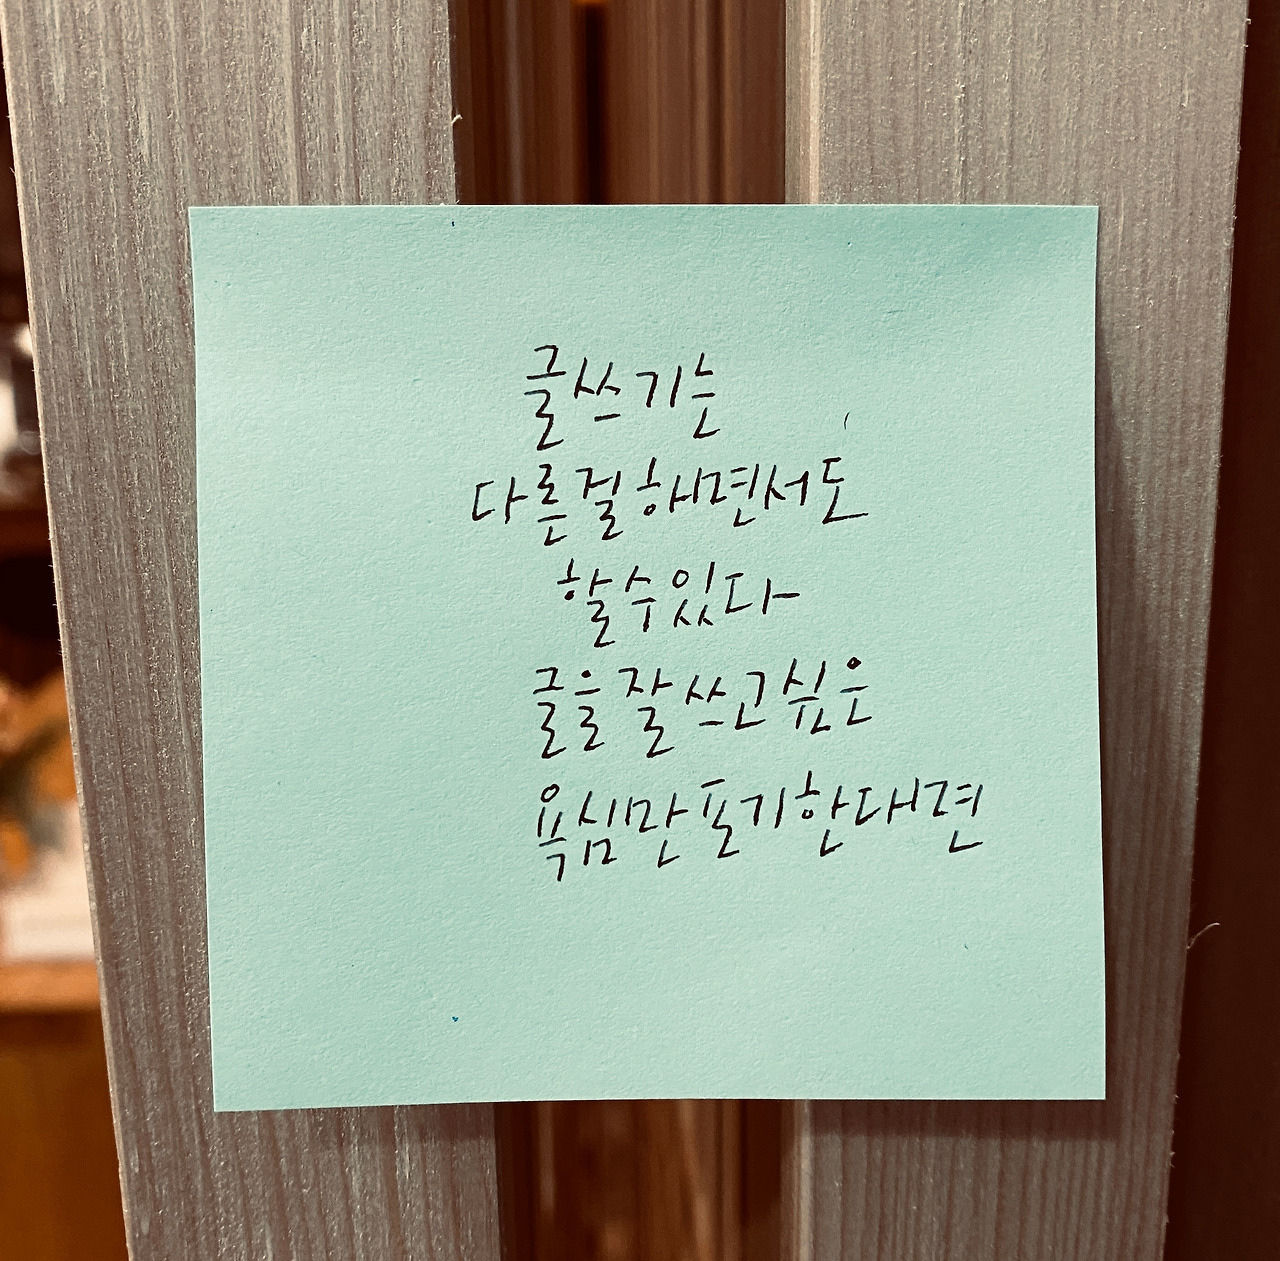 글쓰기는
다른걸 해면서도
할 수 있다
글을 잘 쓰고 싶은
욕심만 포기한대면